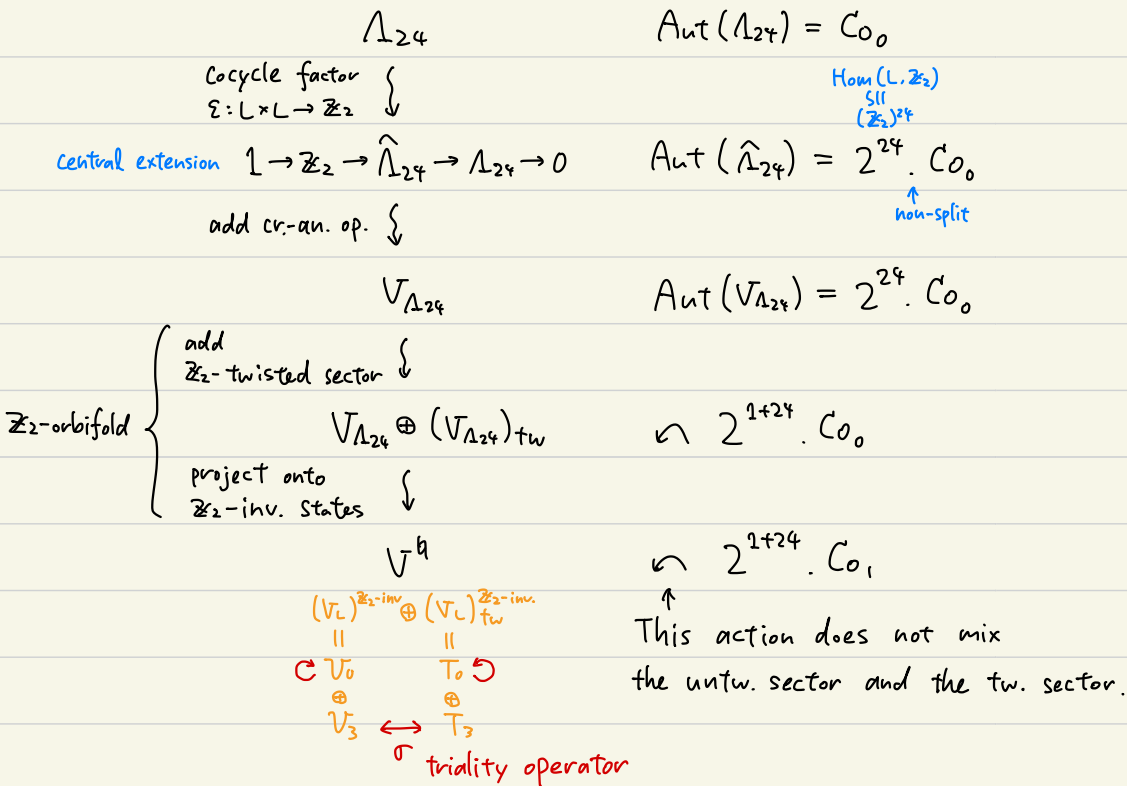 Λ₂₄ Aut(Λ₂₄) = Co₀
cocycle factor
ε: L × L → ℤ₂
Hom(L, ℤ₂)
≅
(ℤ₂)²⁴
central extension 1 → ℤ₂ → Λ̂₂₄ → Λ₂₄ → 0 Aut(Λ̂₂₄) = 2²⁴ . Co₀
↑
non-split
add cr.-an. op.
V_Λ₂₄ Aut(V_Λ₂₄) = 2²⁴ . Co₀
add
ℤ₂-twisted sector
ℤ₂-orbifold
V_Λ₂₄ ⊕ (V_Λ₂₄)_tw ↶ 2¹⁺²⁴ . Co₀
project onto
ℤ₂-inv. states
V^♮ ↶ 2¹⁺²⁴ . Co₁
(V_L)^ℤ₂-inv ⊕ (V_L)_tw^ℤ₂-inv.
|| ||
V₀ T₀
⊕ ⊕
V₃ ↔ T₃
σ triality operator
↑
This action does not mix
the untw. sector and the tw. sector.